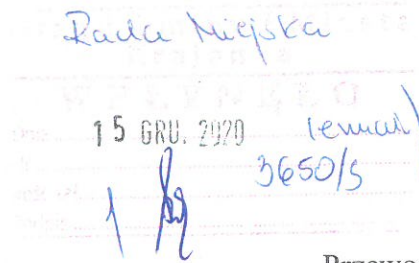 Rada Miejska
WPŁYNĘŁO
15 GRU. 2020 (email)
3650/S
Przewo